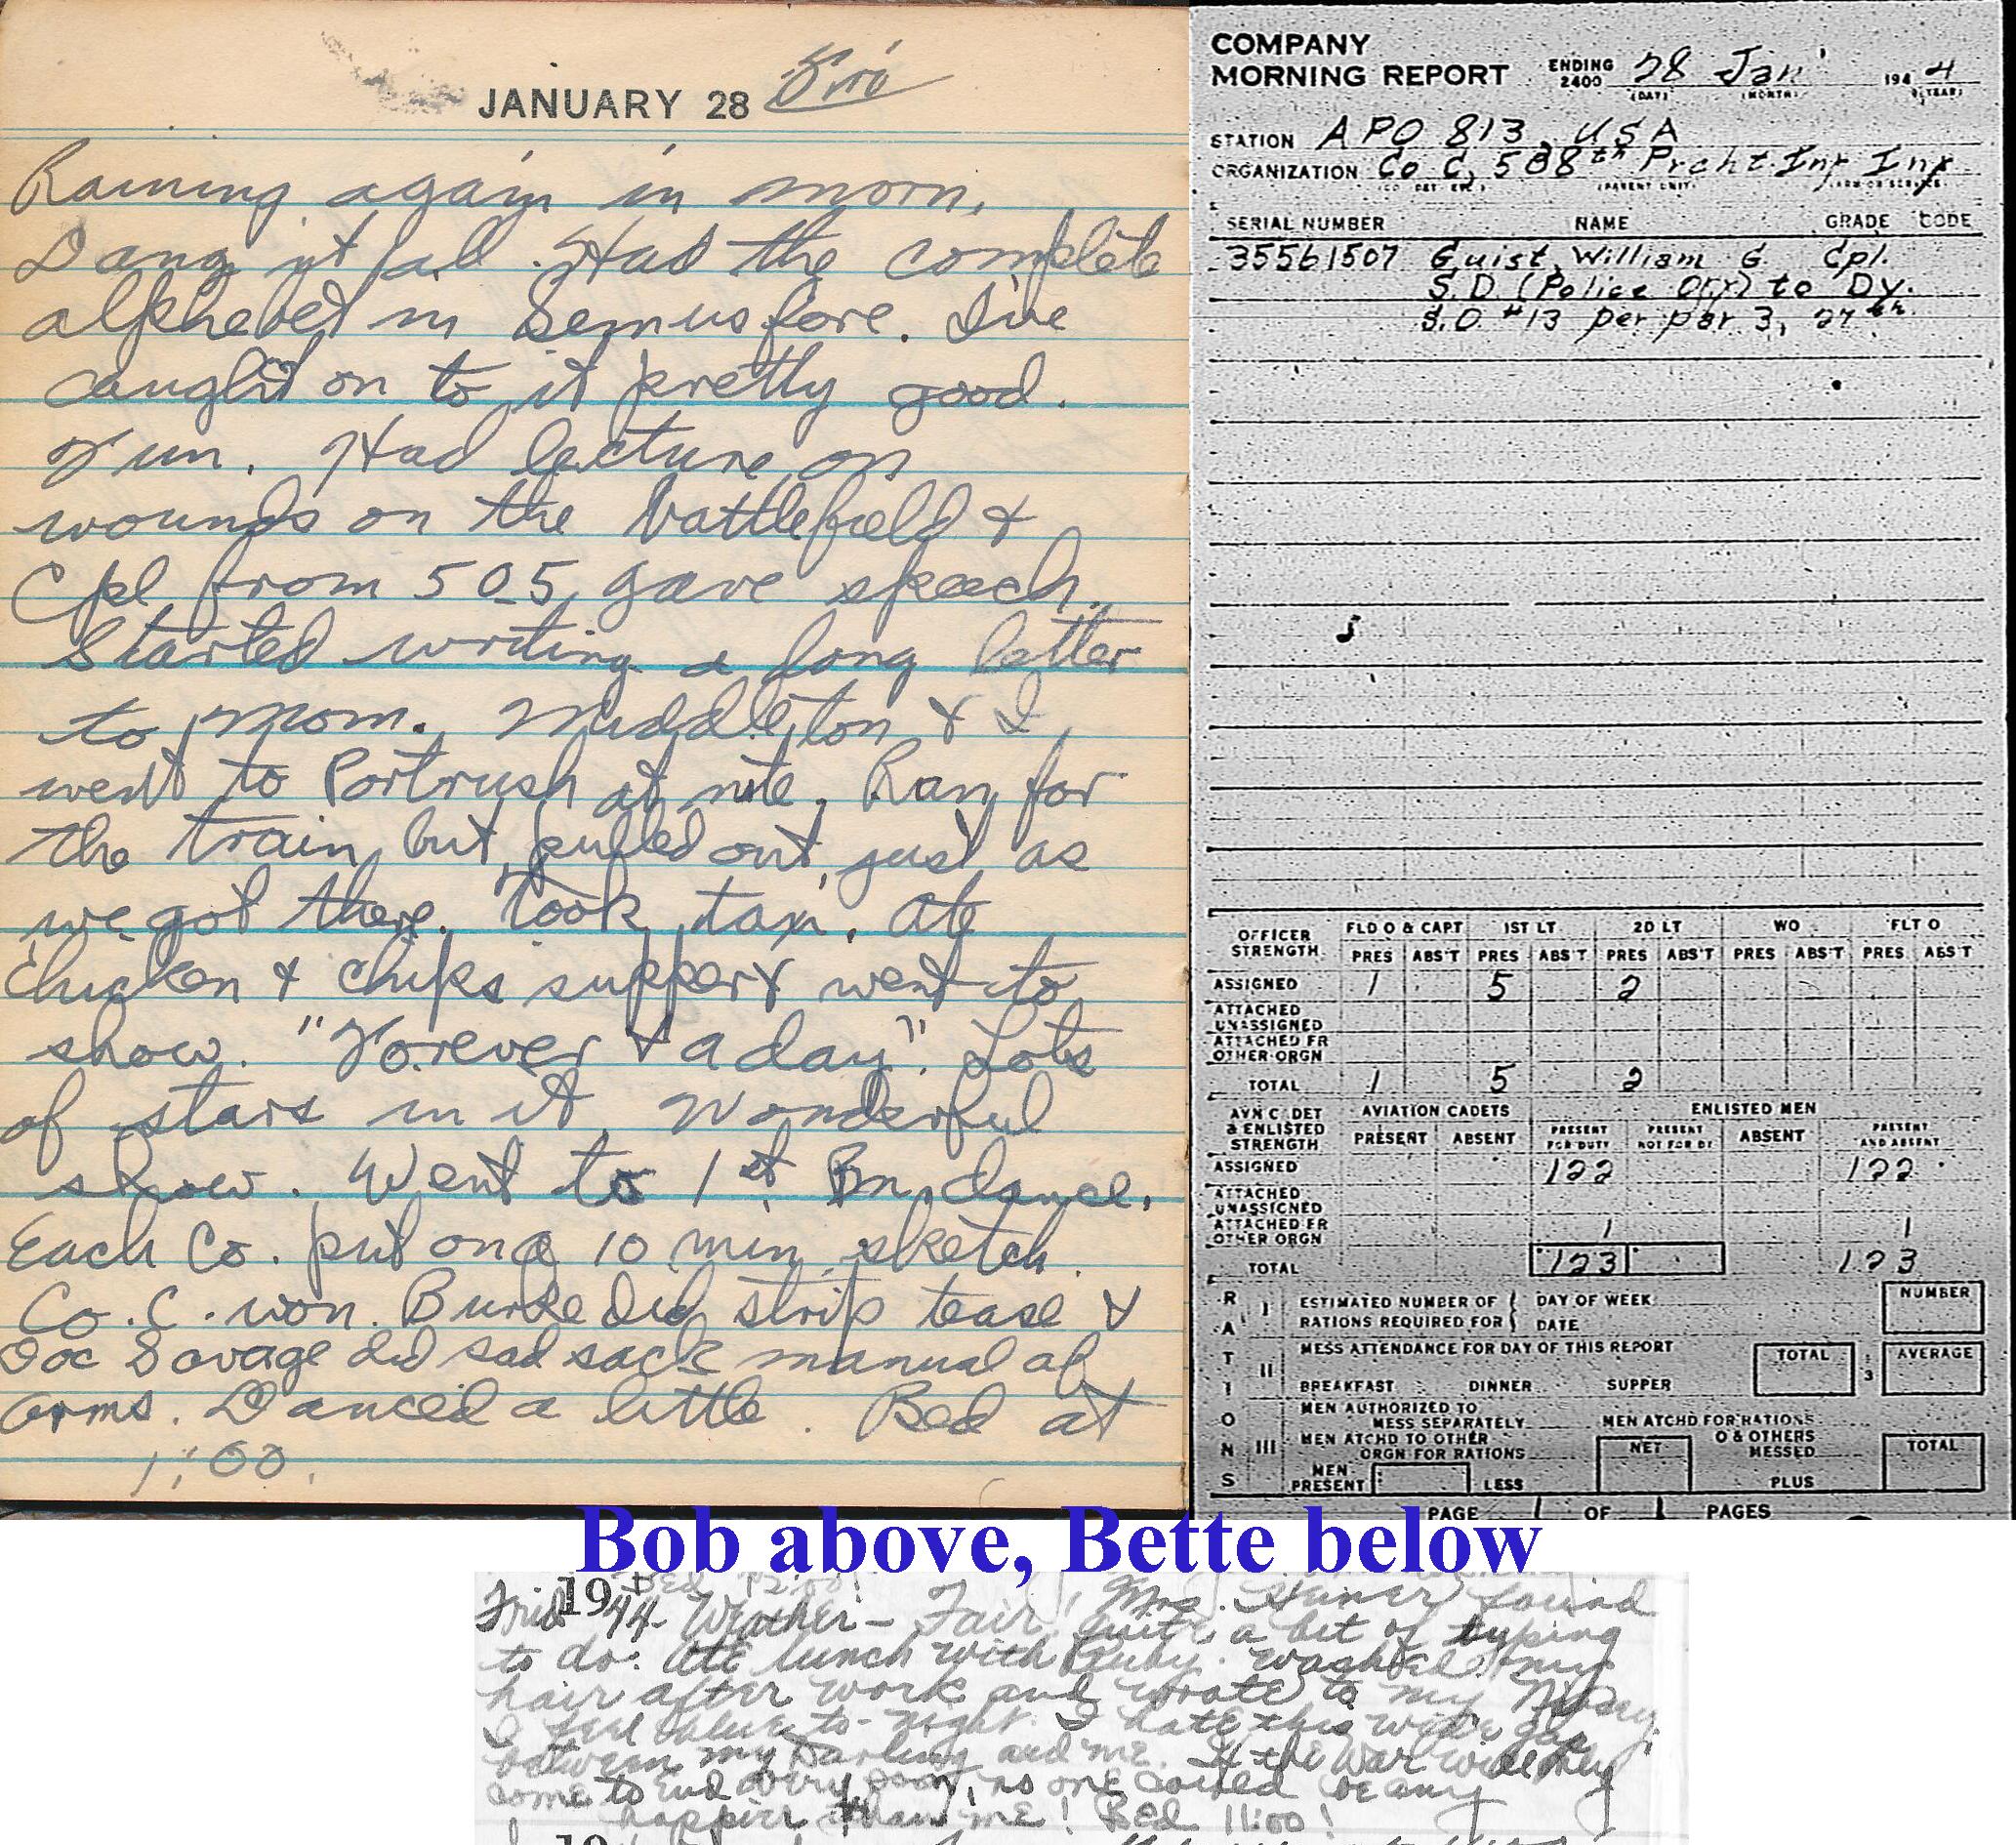 JANUARY 28 Fri
Raining again in morn.
Dang it all. Had the complete
alphebet in Semusfore. I've
caught on to it pretty good.
Fun. Had lecture on
wounds on the battlefield &
Cpl from 505 gave speech.
Started writing a long letter
to mom. Middleton & I
went to Portrush at nite. Ran for
the train but pulled out just as
we got there. Took taxi. Ate
Chicken & chips supper & went to
show. "Forever & a day". Lots
of stars in it. Wonderful
show. Went to 1st Bn. dance.
Each Co. put on a 10 min sketch.
Co. C. won. Burke did strip tease &
Doc Savage did sad sack manual of
arms. Danced a little. Bed at
1:00.
COMPANY
MORNING REPORT ENDING 2400 28 Jan 1944
(DAY) (MONTH) (YEAR)
STATION APO 813, USA
ORGANIZATION Co C, 508th Prcht Inf Inf
(PARENT UNIT) (ARM OR SERVICE)
SERIAL NUMBER NAME GRADE CODE
35561507 Guist, William G Cpl.
S.D. (Police Off) to Dy.
S.O #13 per par 3, 27th
OFFICER STRENGTH FLD O & CAPT 1ST LT 2D LT WO FLT O
PRES ABS'T PRES ABS'T PRES ABS'T PRES ABS'T PRES ABS'T
ASSIGNED 1 5 2
ATTACHED
UNASSIGNED
ATTACHED FR
OTHER ORGN
TOTAL 1 5 2
AVN C DET & ENLISTED STRENGTH AVIATION CADETS ENLISTED MEN
PRESENT ABSENT PRESENT FOR DUTY PRESENT NOT FOR DY ABSENT PRESENT AND ABSENT
ASSIGNED 122 122
ATTACHED
UNASSIGNED
ATTACHED FR
OTHER ORGN 1 1
TOTAL 123 123
RATIONS
I ESTIMATED NUMBER OF DAY OF WEEK NUMBER
RATIONS REQUIRED FOR DATE
II MESS ATTENDANCE FOR DAY OF THIS REPORT TOTAL 3 AVERAGE
BREAKFAST DINNER SUPPER
MEN AUTHORIZED TO
MESS SEPARATELY MEN ATCHD FOR RATIONS
III MEN ATCHD TO OTHER O & OTHERS
ORGN FOR RATIONS NET MESSED TOTAL
MEN
PRESENT LESS PLUS
PAGE 1 OF 1 PAGES
Bob above, Bette below
Bed 12:00!
Frid 1944 Weather - Fair. Mrs. found
quite a bit of typing
to do. Ate lunch with Ruby. Washed my
hair after work and wrote to my
I feel blue to-night. I hate this wide gap
between my Darling and me. If the war will only
come to end very soon, no one could be any
happier than me! Bed 11:00!
19